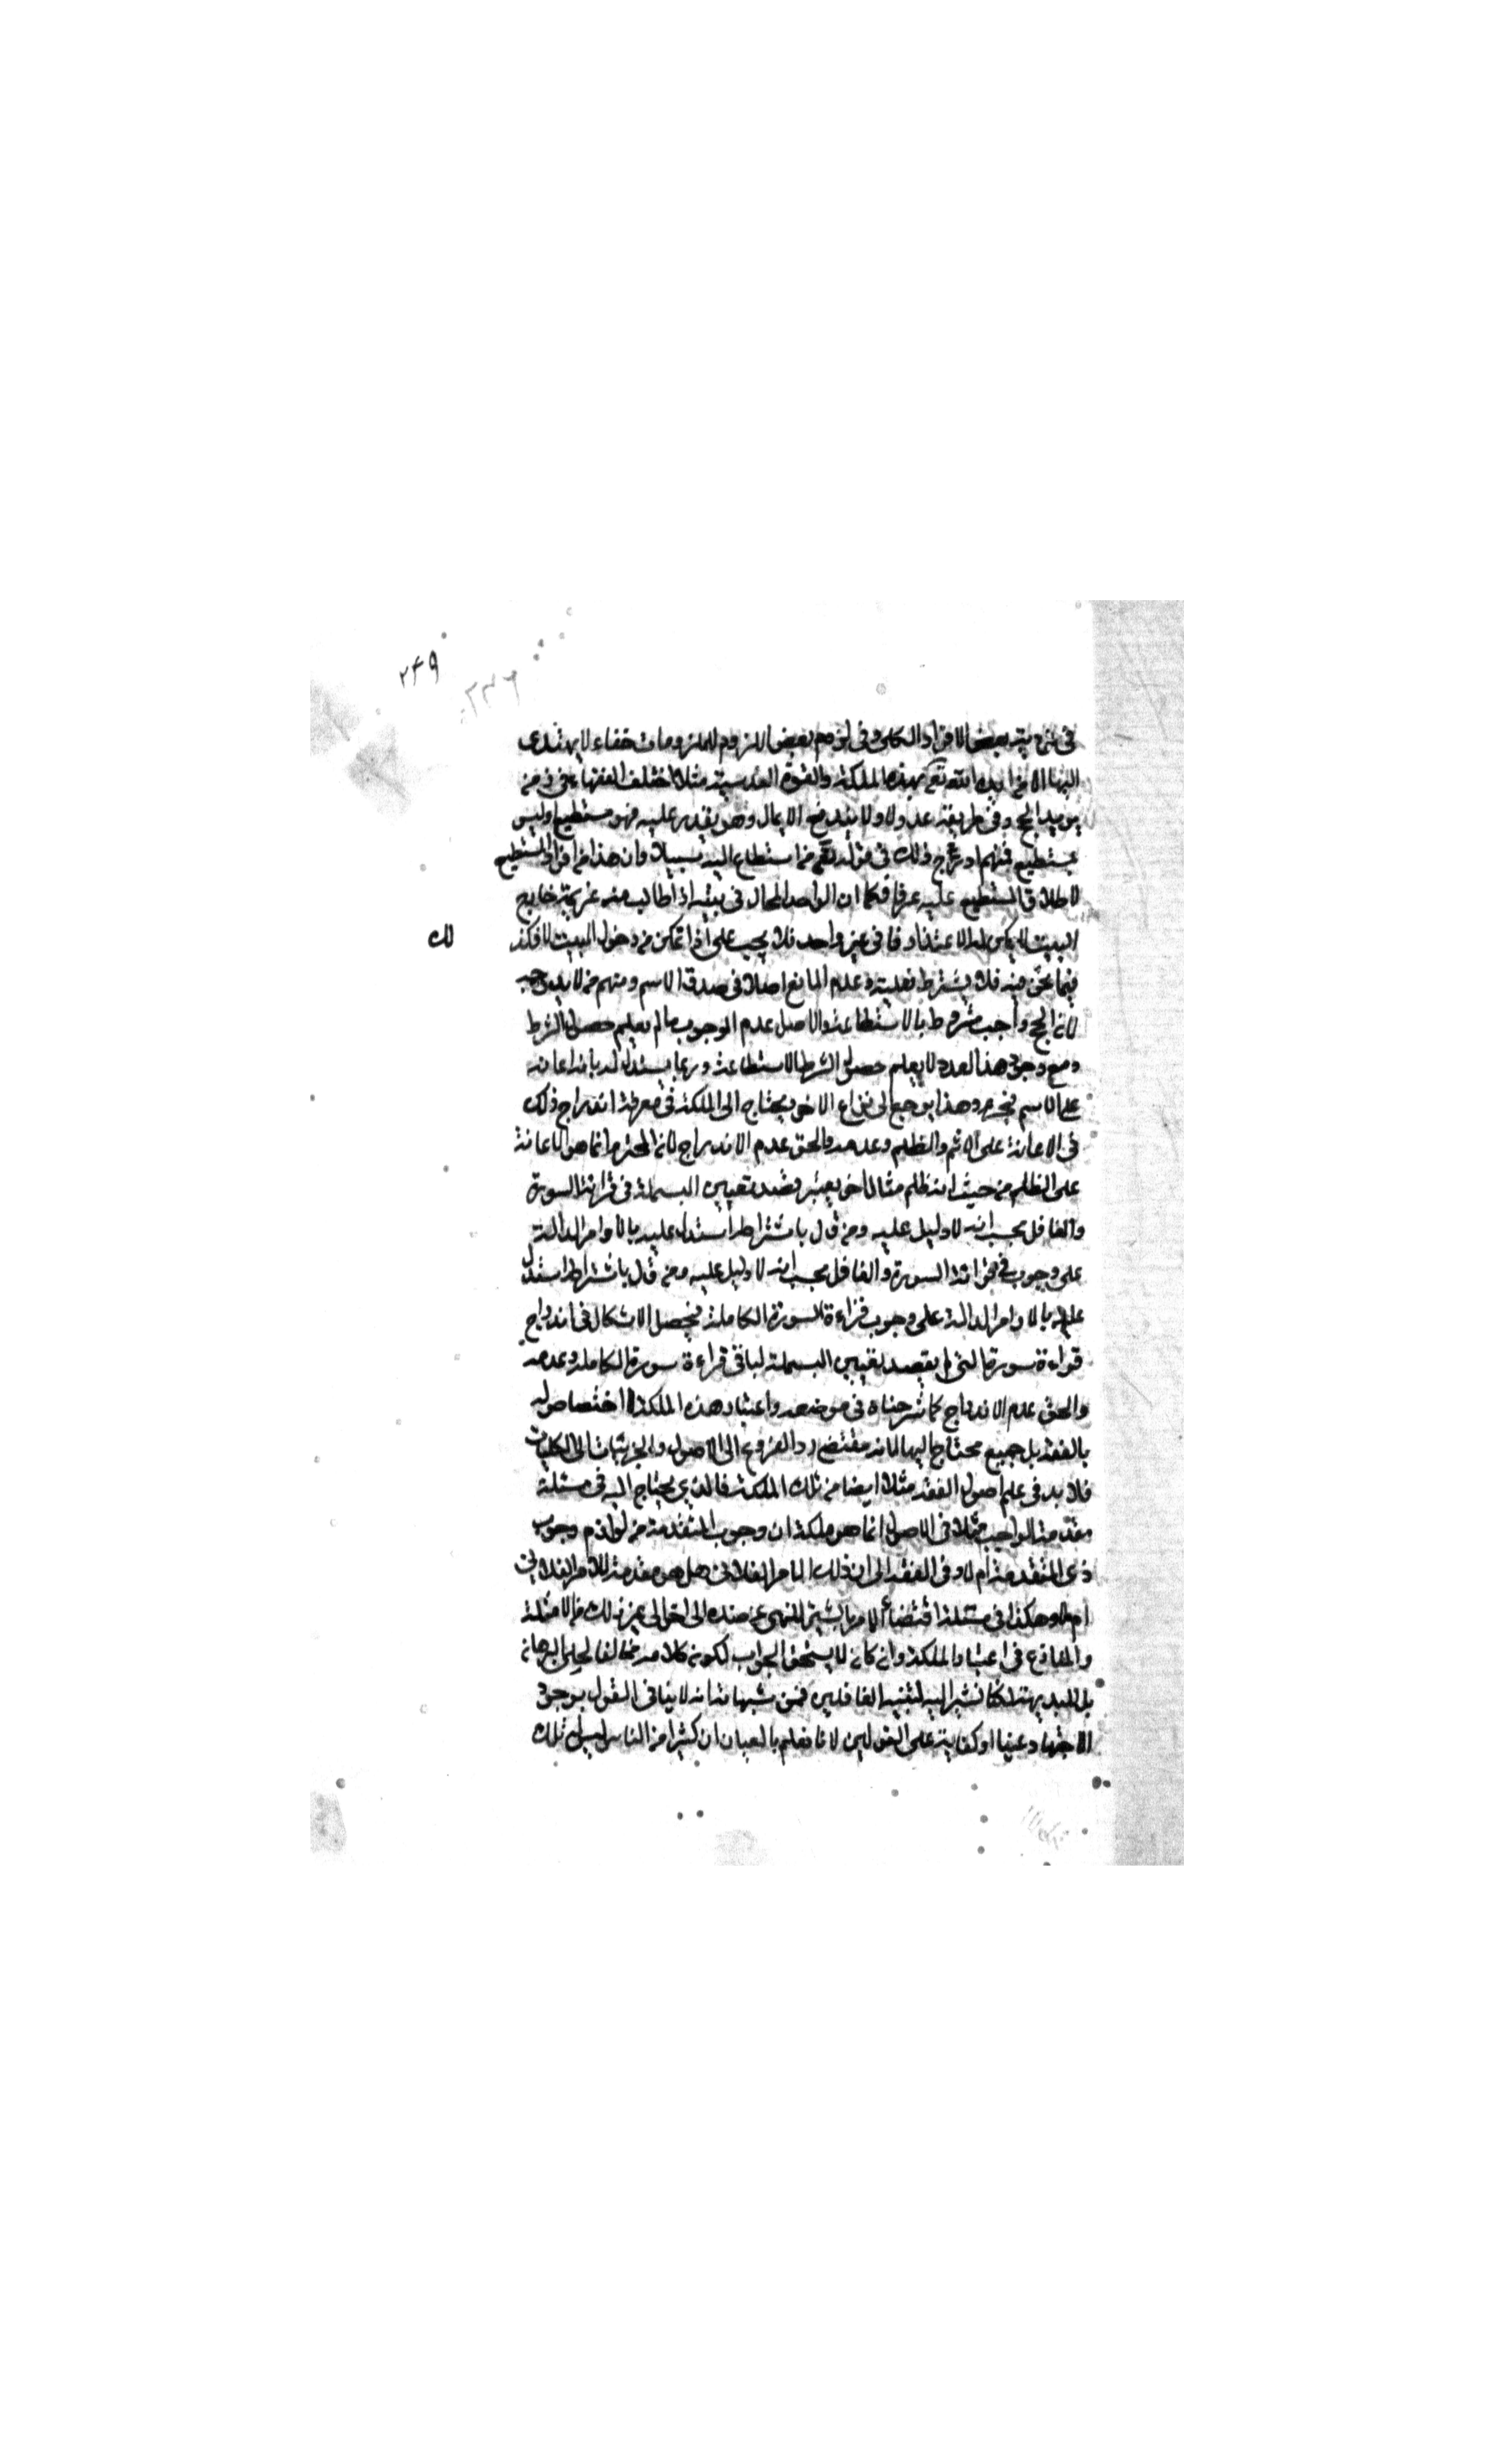 ۲۴۹
۲۳۶
فى فردية بعض الافراد للكلى وفى لزوم بعض اللزوم للملزومات خفاء لا يهتدى
اليها الا من ايده الله تعم بهذه الملكة والقوة القدسية مثلا اختلف الفقهاء فى من
يريد الحج وفى طريقه عدو ولا يندفع الا بمال وهو يقدر عليه فهو مستطيع او ليس
بمستطيع فمنهم ادرج ذلك فى قوله تعم من استطاع اليه سبيلا وان هذا من افراد المستطيع
لاطلاق المستطيع عليه عرفا فكما ان الواحد للمال فى بيته اذا طالب منه غريمه خارج
البيت لا يمكن له الاعتذار فانى غير واجد فلا يجب على اذا تمكن من دخول البيت فكذ
لك
فيما نحن فيه فلا يشترط فعلية عدم المانع اصلا فى صدق الاسم ومنهم من لا يوجبه
لان الحج واجب مشروط بالاستطاعة والاصل عدم الوجوب ما لم يعلم حصول الشرط
ومع وجود هذا العدو لا يعلم حصول الشرط الاستطاعة وربما يستدل له بانه اعانة
على الاثم فيحرم وهذا يرجع الى نزاع الاخر ويحتاج الى الملكة فى معرفة اندراج ذلك
فى الاعانة على الاثم والظلم وعدمه والحق عدم الاندراج لان المحرم انما هو الاعانة
على الظلم من حيث انه ظلم مثال اخر يعتبر قصد تعيين البسملة فى قرائة السورة
والغافل يحسب انه لا دليل عليه ومن قال باشتراط استدل عليه بالاوامر الدالة
على وجوب قرائة السورة والغافل يحسب انه لا دليل عليه ومن قال باشتراط استدل
عليه بالاوامر الدالة على وجوب قراءة السورة الكاملة فيحصل الاشكال فى اندراج
قراءة سورة التى لم يقصد بتعيين البسملة لباقى قراءة سورة الكاملة وعدمه
والحق عدم الاندراج كما شرحناه فى موضعه واعتبار هذه الملكة لا اختصاص له
بالفقه بل جميع محتاج اليها لانه مقتضى رد الفروع الى الاصول والجزئيات الى الكليات
فلا بد فى علم اصول الفقه مثلا ايضا من تلك الملكة فالذى يحتاج اليه فى مسئلة
مقدمة الواجب مثلا فى الاصول انما هو ملكة ان وجوب المقدمة من لوازم وجوب
ذى المقدمة ام لا وفى الفقه الى ان ذلك الامر الفلانى هل هو مقدمة للامر الفلانى
ام لا وهكذا فى مسئلة اقتضاء الامر بالشئ للنهى عن ضده الى اخر الى غير ذلك من الامثلة
والمنازع فى اعتبار الملكة وان كان لا يستحق الجواب لكونه كلامه مخالفا لجلى البرهان
بل للبديهة لكنا نشير اليه لتنبيه الغافلين فمن شبهاته انه لا ينافى القول بوجوب
الاجتهاد عينا او كفاية على القولين لانا نعلم بالعيان ان كثيرا من الناس ليس له تلك